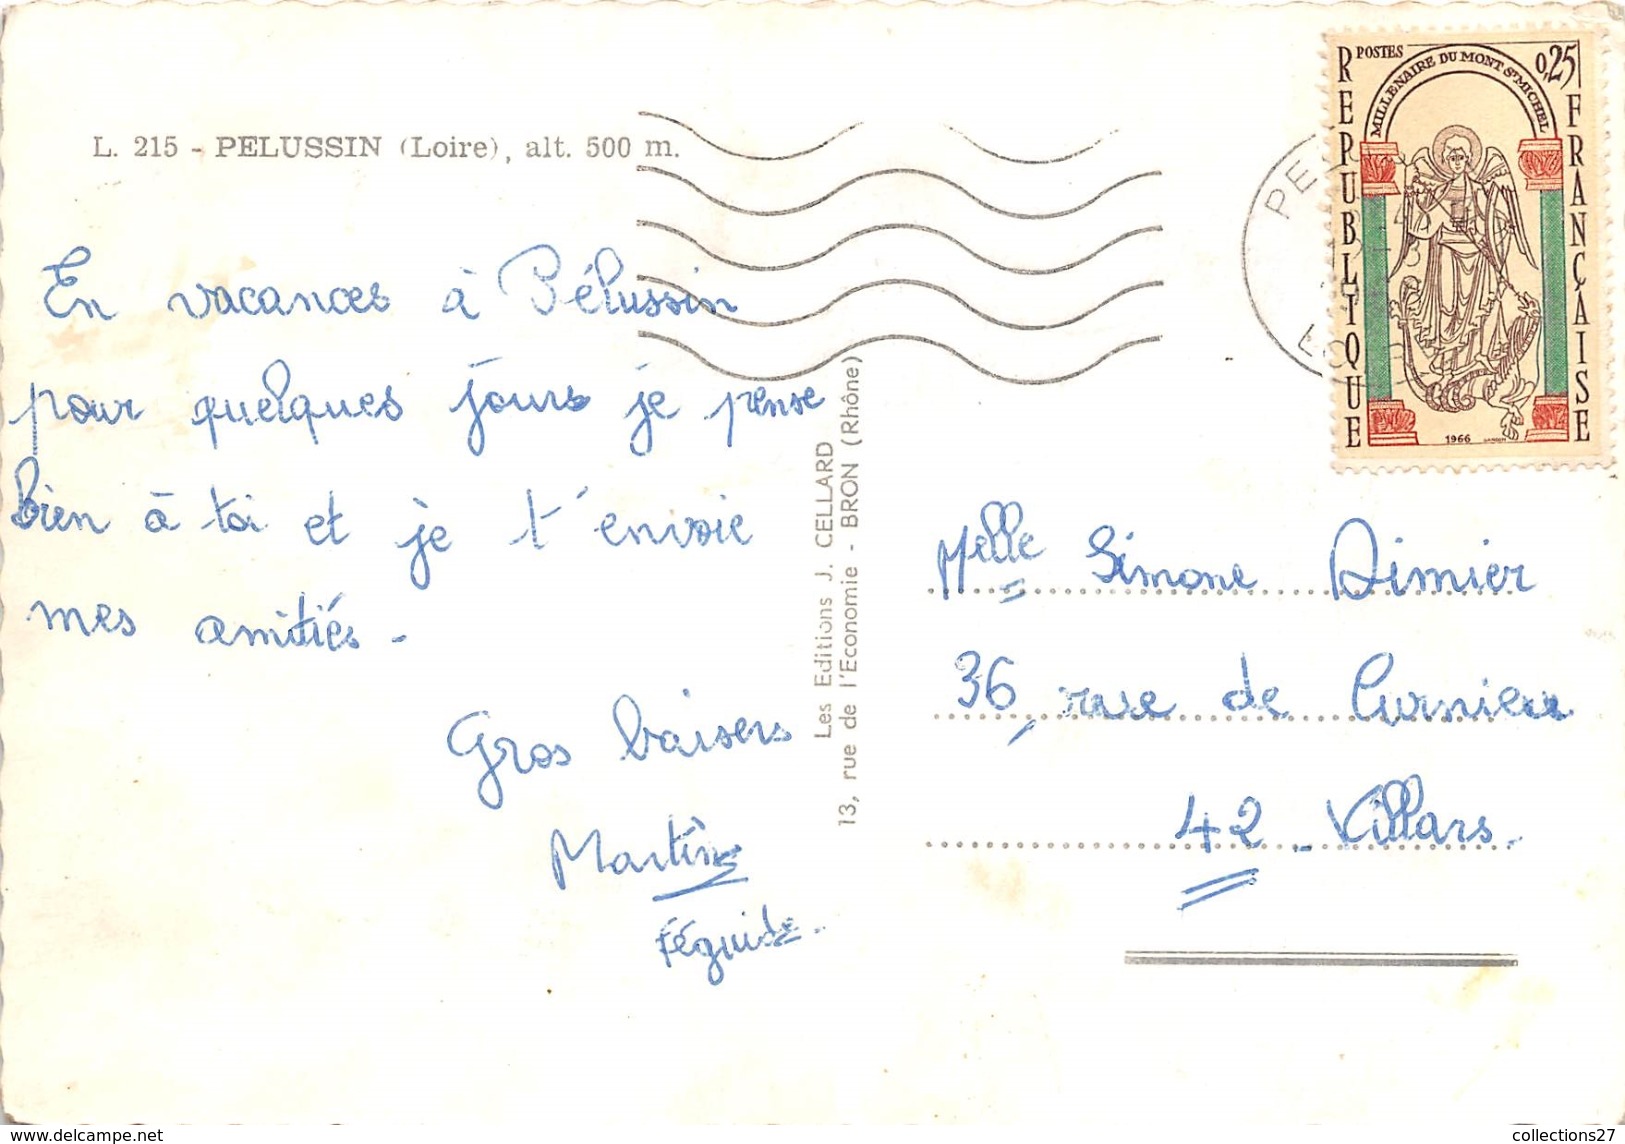 L. 215 - PELUSSIN (Loire), alt. 500 m.
En vacances à Pélussin
pour quelques jours je pense
bien à toi et je t'envoie
mes amitiés -
Gros baisers
Martine
Féguide.
Les Editions J. CELLARD
13, rue de l'Economie - BRON (Rhône)
POSTES
0,25
MILLENAIRE DU MONT ST MICHEL
REPUBLIQUE
FRANÇAISE
1966
Melle Simone Dimier
36, rue de Curnieu
42 - Villars.
collections27